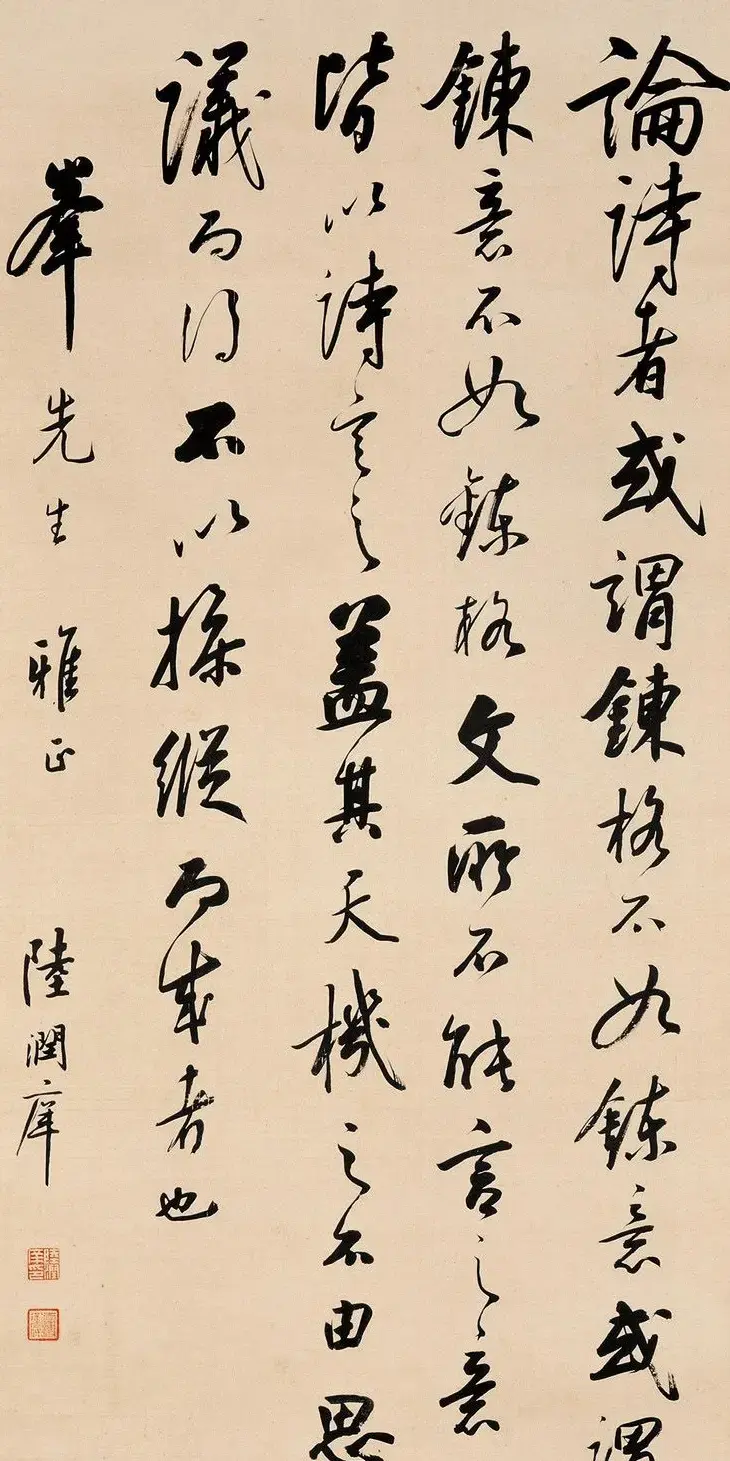 論詩者或謂鍊格不如鍊意或謂
鍊意不如鍊格文所不能言之意
皆以詩言之蓋其天機之不由思
議而得不以操縱而成者也
峯先生雅正
陸潤庠